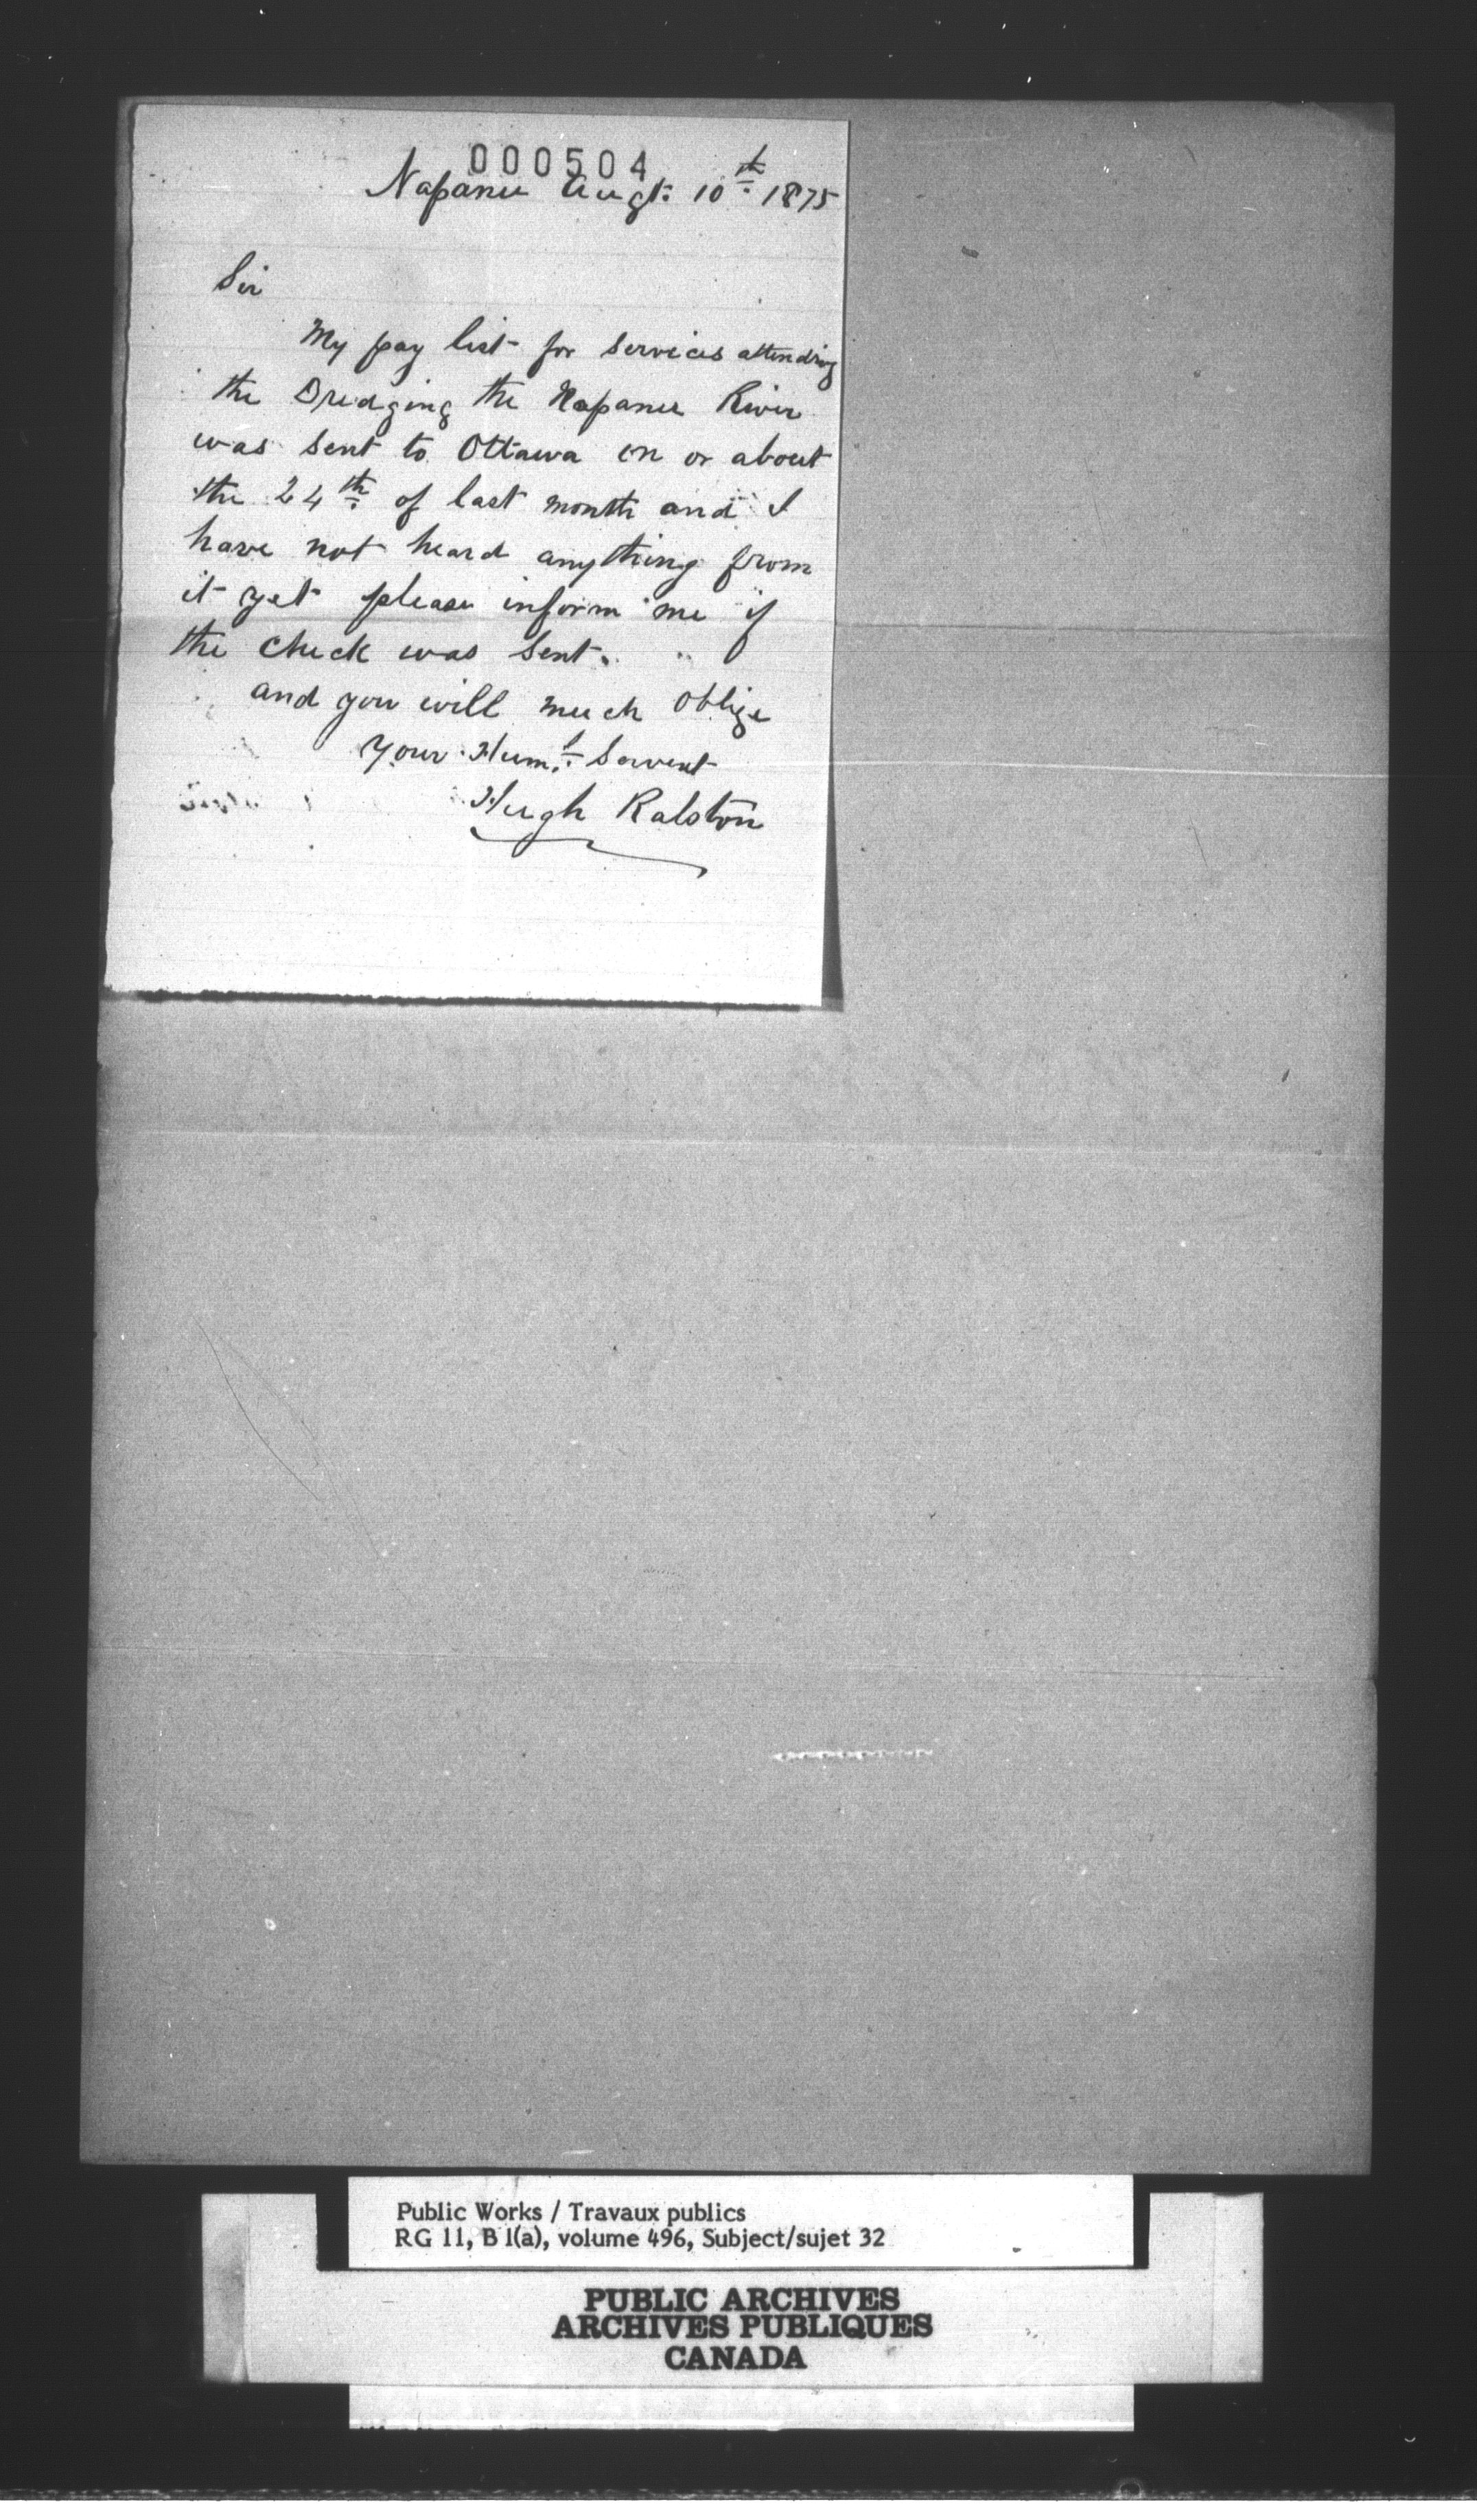 000504
Napanee Augt. 10th 1875
Sir
My pay list for services attending
the Dredging the Napanee River
was sent to Ottawa on or about
the 24th of last month and I
have not heard anything from
it yet please inform me if
the check was sent.
and you will much oblige
your Huml. Servent
Hugh Ralston
Public Works / Travaux publics
RG 11, B 1(a), volume 496, Subject/sujet 32
PUBLIC ARCHIVES
ARCHIVES PUBLIQUES
CANADA